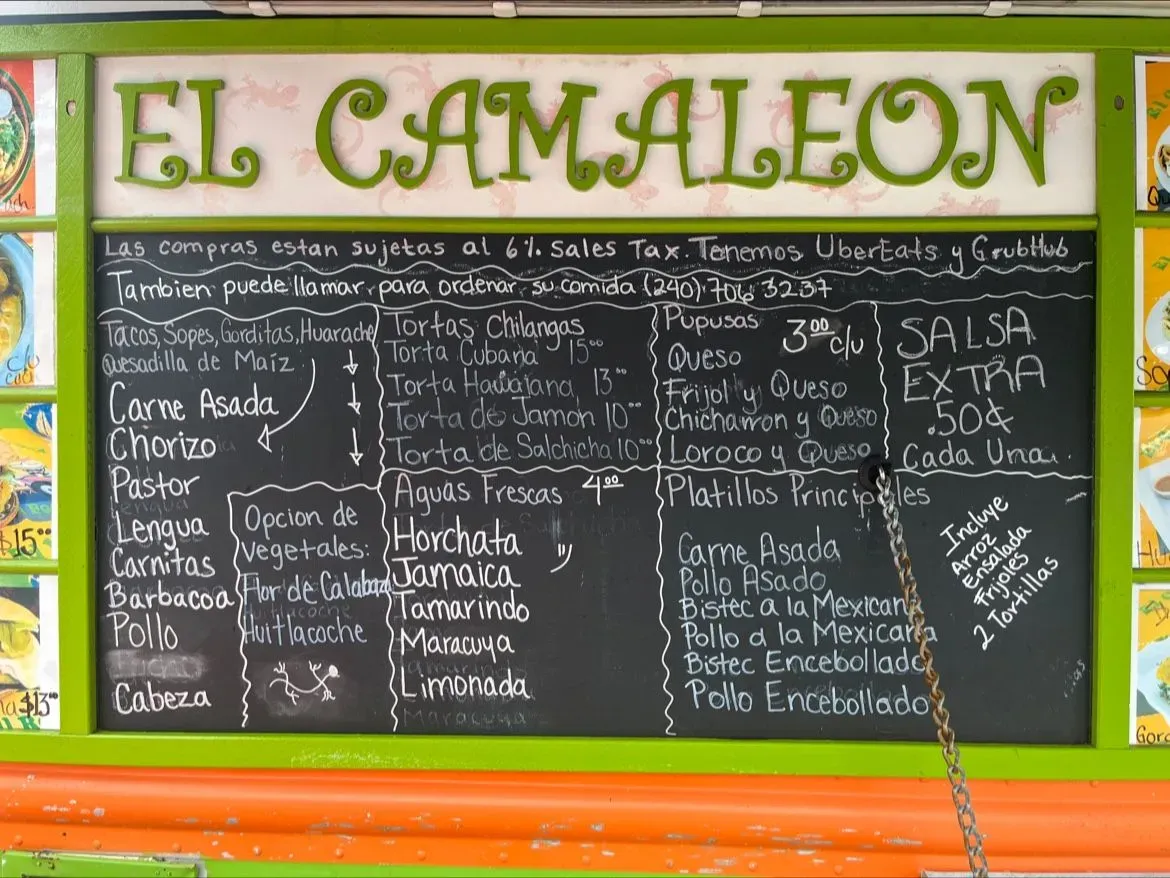 EL CAMALEON
Las compras estan sujetas al 6% Sales Tax. Tenemos UberEats y GrubHub
Tambien puede llamar para ordenar su comida (240) 706 3237
Tacos, Sopes, Gorditas, Huarache
Quesadilla de Maíz
Carne Asada
Chorizo
Pastor
Lengua
Carnitas
Barbacoa
Pollo
Cabeza
Opcion de
vegetales:
Flor de Calabaza
Huitlacoche
Huitlacoche
Tortas Chilangas
Torta Cubana 15°°
Torta Hawaiana 13°°
Torta de Jamon 10°°
Torta de Salchicha 10°°
Aguas Frescas 4°°
Horchata
Jamaica
Tamarindo
Maracuya
Limonada
Maracuya
Pupusas 3°° c/u
Queso
Frijol y Queso
Chicharron y Queso
Loroco y Queso
Platillos Principales
Carne Asada
Pollo Asado
Bistec a la Mexicana
Pollo a la Mexicana
Bistec Encebollado
Pollo Encebollado
SALSA
EXTRA
.50¢
Cada Una.
Incluye
Arroz
Ensalada
Frijoles
2 Tortillas
$15°°
$13°°